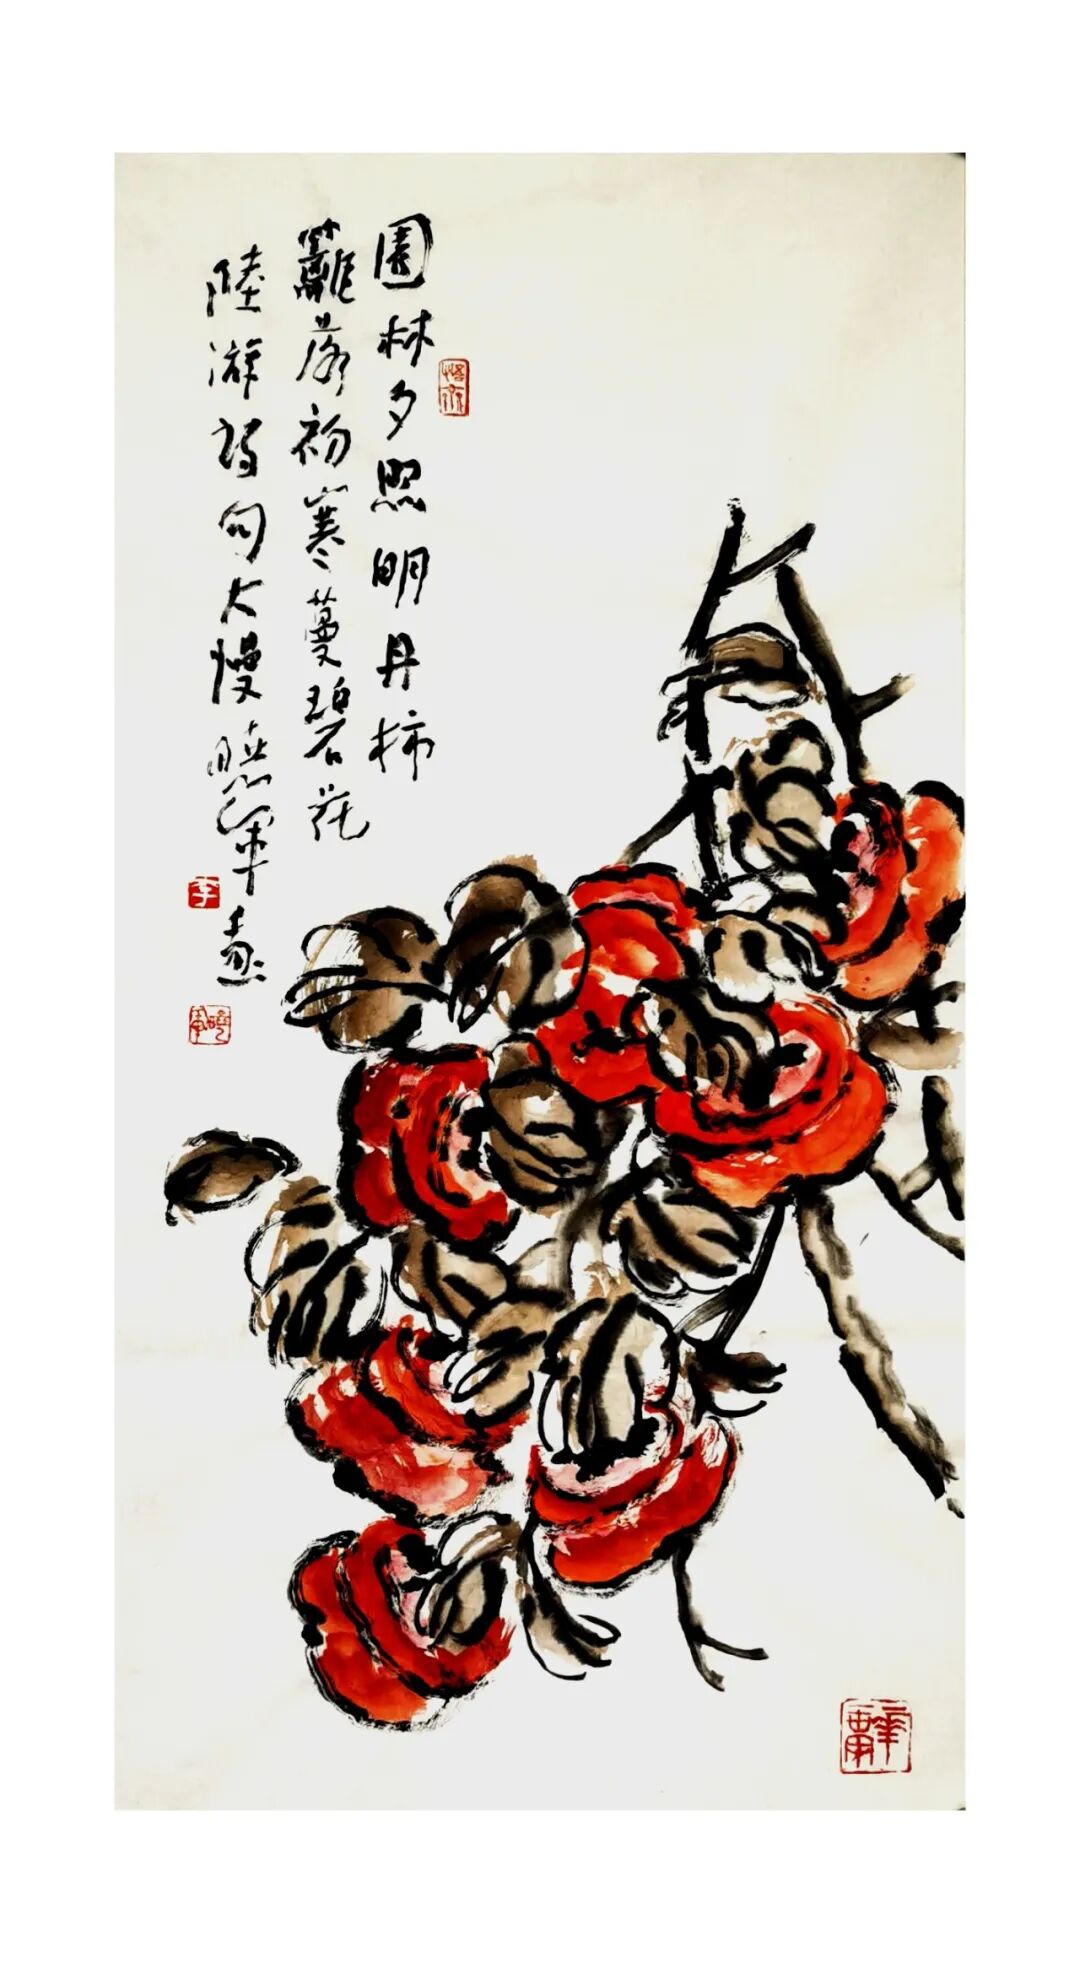 園林夕照明丹柿
籬落初寒蔓碧花
陸游詩句大慢曉軍畫
李